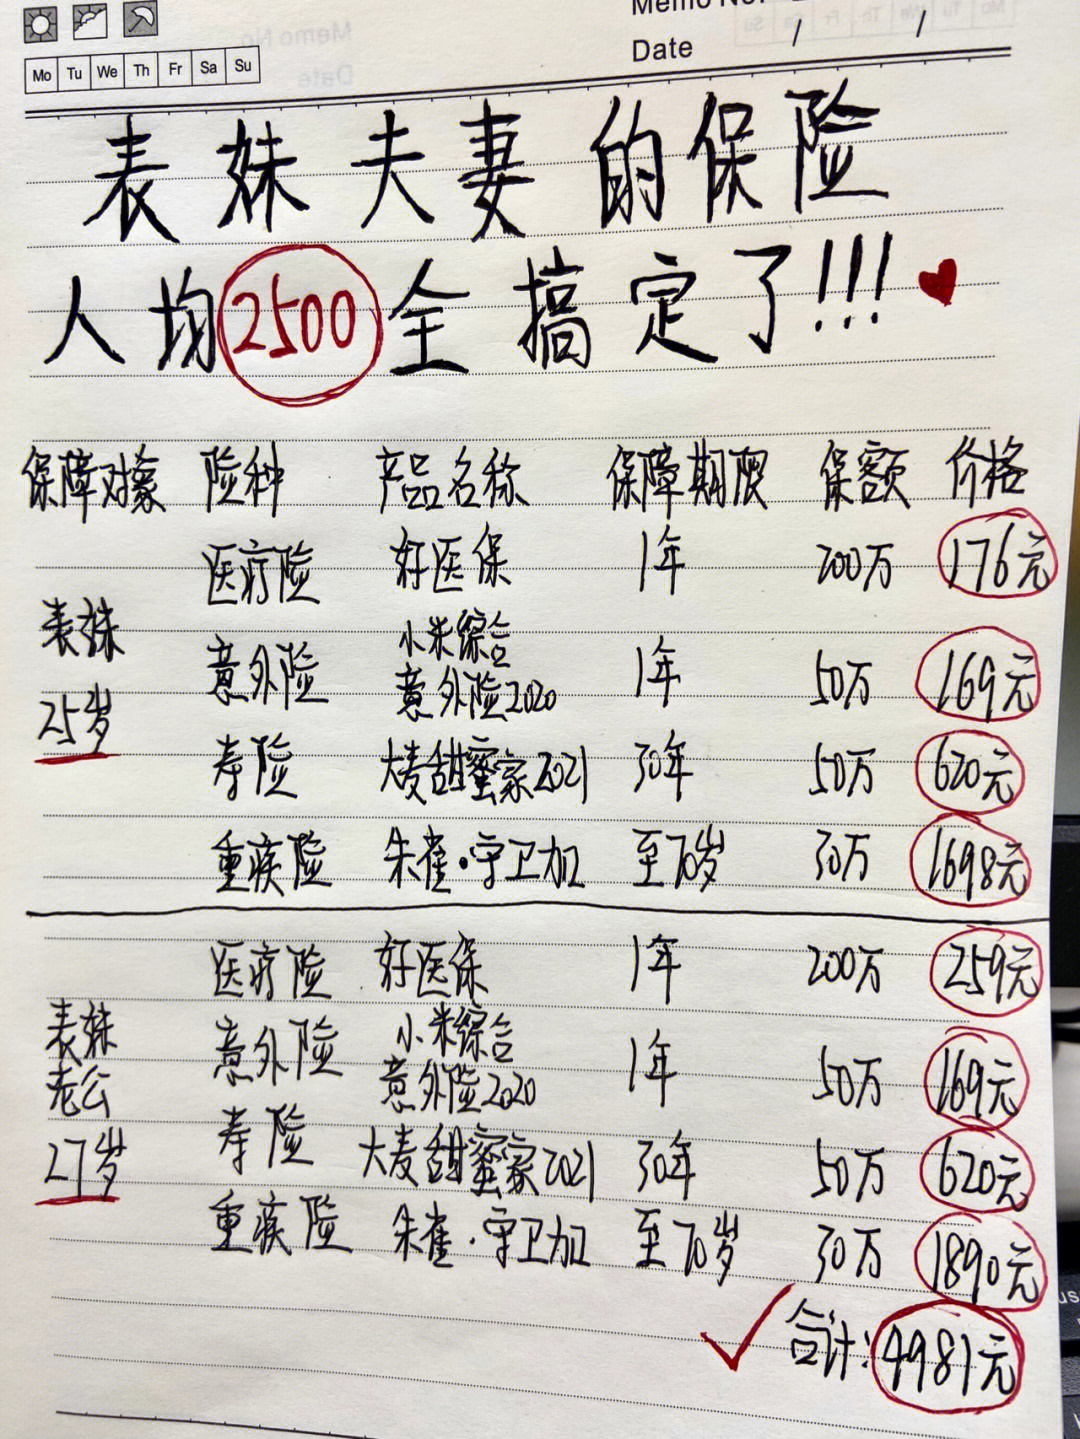 Memo No.
Date / /
Mo Tu We Th Fr Sa Su
表妹夫妻的保险
人均2500全搞定了!!!
保障对象 险种 产品名称 保障期限 保额 价格
医疗险 好医保 1年 200万 176元
表妹
小米综合
意外险 意外险2020 1年 50万 169元
25岁
寿险 大麦甜蜜家2021 30年 50万 620元
重疾险 朱雀·守卫加 至70岁 30万 1698元
医疗险 好医保 1年 200万 259元
表妹
小米综合
意外险 意外险2020 1年 50万 169元
老公
寿险 大麦甜蜜家2021 30年 50万 620元
27岁
重疾险 朱雀·守卫加 至70岁 30万 1890元
合计:4981元